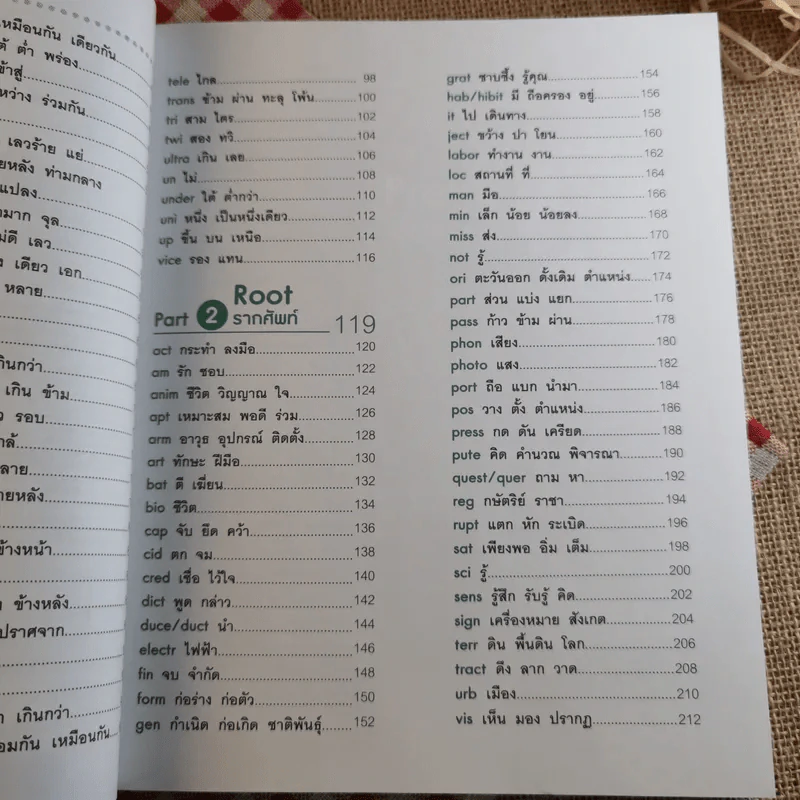 เหมือนกัน เดียวกัน
ต่ำ พร่อง
ร่วมกัน
เลวร้าย แย่
ท่ามกลาง
แปลง
จุล
เลว
เดียว เอก
หลาย
เกิน ข้าม
รอบ
ข้างหน้า
ข้างหลัง
ปราศจาก
เกินกว่า
เหมือนกัน
tele ไกล 98
trans ข้าม ผ่าน ทะลุ โพ้น 100
tri สาม ไตร 102
twi สอง ทวิ 104
ultra เกิน เลย 106
un ไม่ 108
under ใต้ ต่ำกว่า 110
uni หนึ่ง เป็นหนึ่งเดียว 112
up ขึ้น บน เหนือ 114
vice รอง แทน 116
Part 2 Root
รากศัพท์ 119
act กระทำ ลงมือ 120
am รัก ชอบ 122
anim ชีวิต วิญญาณ ใจ 124
apt เหมาะสม พอดี ร่วม 126
arm อาวุธ อุปกรณ์ ติดตั้ง 128
art ทักษะ ฝีมือ 130
bat ตี เฆี่ยน 132
bio ชีวิต 134
cap จับ ยึด คว้า 136
cid ตก จม 138
cred เชื่อ ไว้ใจ 140
dict พูด กล่าว 142
duce/duct นำ 144
electr ไฟฟ้า 146
fin จบ จำกัด 148
form ก่อร่าง ก่อตัว 150
gen กำเนิด ก่อเกิด ชาติพันธุ์ 152
grat ซาบซึ้ง รู้คุณ 154
hab/hibit มี ถือครอง อยู่ 156
it ไป เดินทาง 158
ject ขว้าง ปา โยน 160
labor ทำงาน งาน 162
loc สถานที่ ที่ 164
man มือ 166
min เล็ก น้อย น้อยลง 168
miss ส่ง 170
not รู้ 172
ori ตะวันออก ดั้งเดิม ตำแหน่ง 174
part ส่วน แบ่ง แยก 176
pass ก้าว ข้าม ผ่าน 178
phon เสียง 180
photo แสง 182
port ถือ แบก นำมา 184
pos วาง ตั้ง ตำแหน่ง 186
press กด ดัน เครียด 188
pute คิด คำนวณ พิจารณา 190
quest/quer ถาม หา 192
reg กษัตริย์ ราชา 194
rupt แตก หัก ระเบิด 196
sat เพียงพอ อิ่ม เต็ม 198
sci รู้ 200
sens รู้สึก รับรู้ คิด 202
sign เครื่องหมาย สังเกต 204
terr ดิน พื้นดิน โลก 206
tract ดึง ลาก วาด 208
urb เมือง 210
vis เห็น มอง ปรากฏ 212